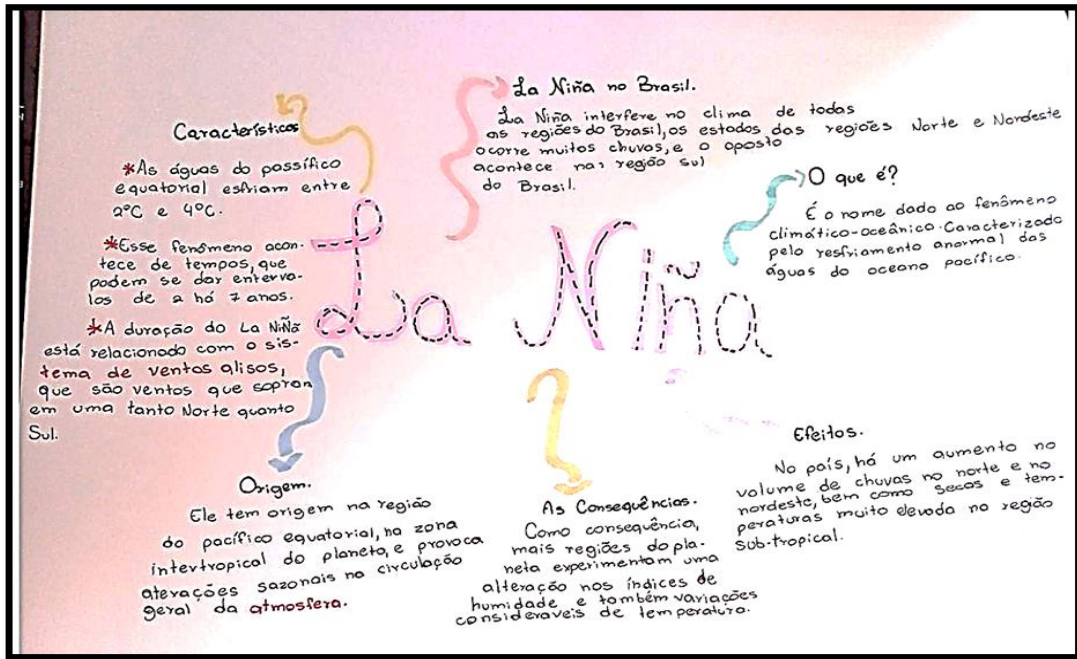 La Niña
Características
*As águas do passífico
equatorial esfriam entre
2°C e 4°C.
*Esse fenômeno acon-
tece de tempos, que
podem se dar enterva-
los de 2 há 7 anos.
*A duração do La NiÑa
está relacionado com o sis-
tema de ventos alisos,
que são ventos que sopran
em uma tanto Norte quanto
Sul.
La Niña no Brasil.
La Niña interfere no clima de todas
as regiões do Brasil, os estados das regiões Norte e Nordeste
ocorre muitos chuvas, e o oposto
acontece nas região sul
do Brasil.
O que é?
É o nome dado ao fenômeno
climático-oceânico. Caracterizado
pelo resfriamento anormal das
águas do oceano pacífico.
Origem.
Ele tem origem na região
do pacífico equatorial, na zona
intertropical do planeta, e provoca
aterações sazonais na circulação
geral da atmosfera.
As Consequências.
Como consequência,
mais regiões do pla-
neta experimentam uma
alteração nos índices de
humidade e também variações
consideraveis de temperatura.
Efeitos.
No país, há um aumento no
volume de chuvas no norte e no
nordeste, bem como secas e tem-
peraturas muito elevada na região
sub-tropical.